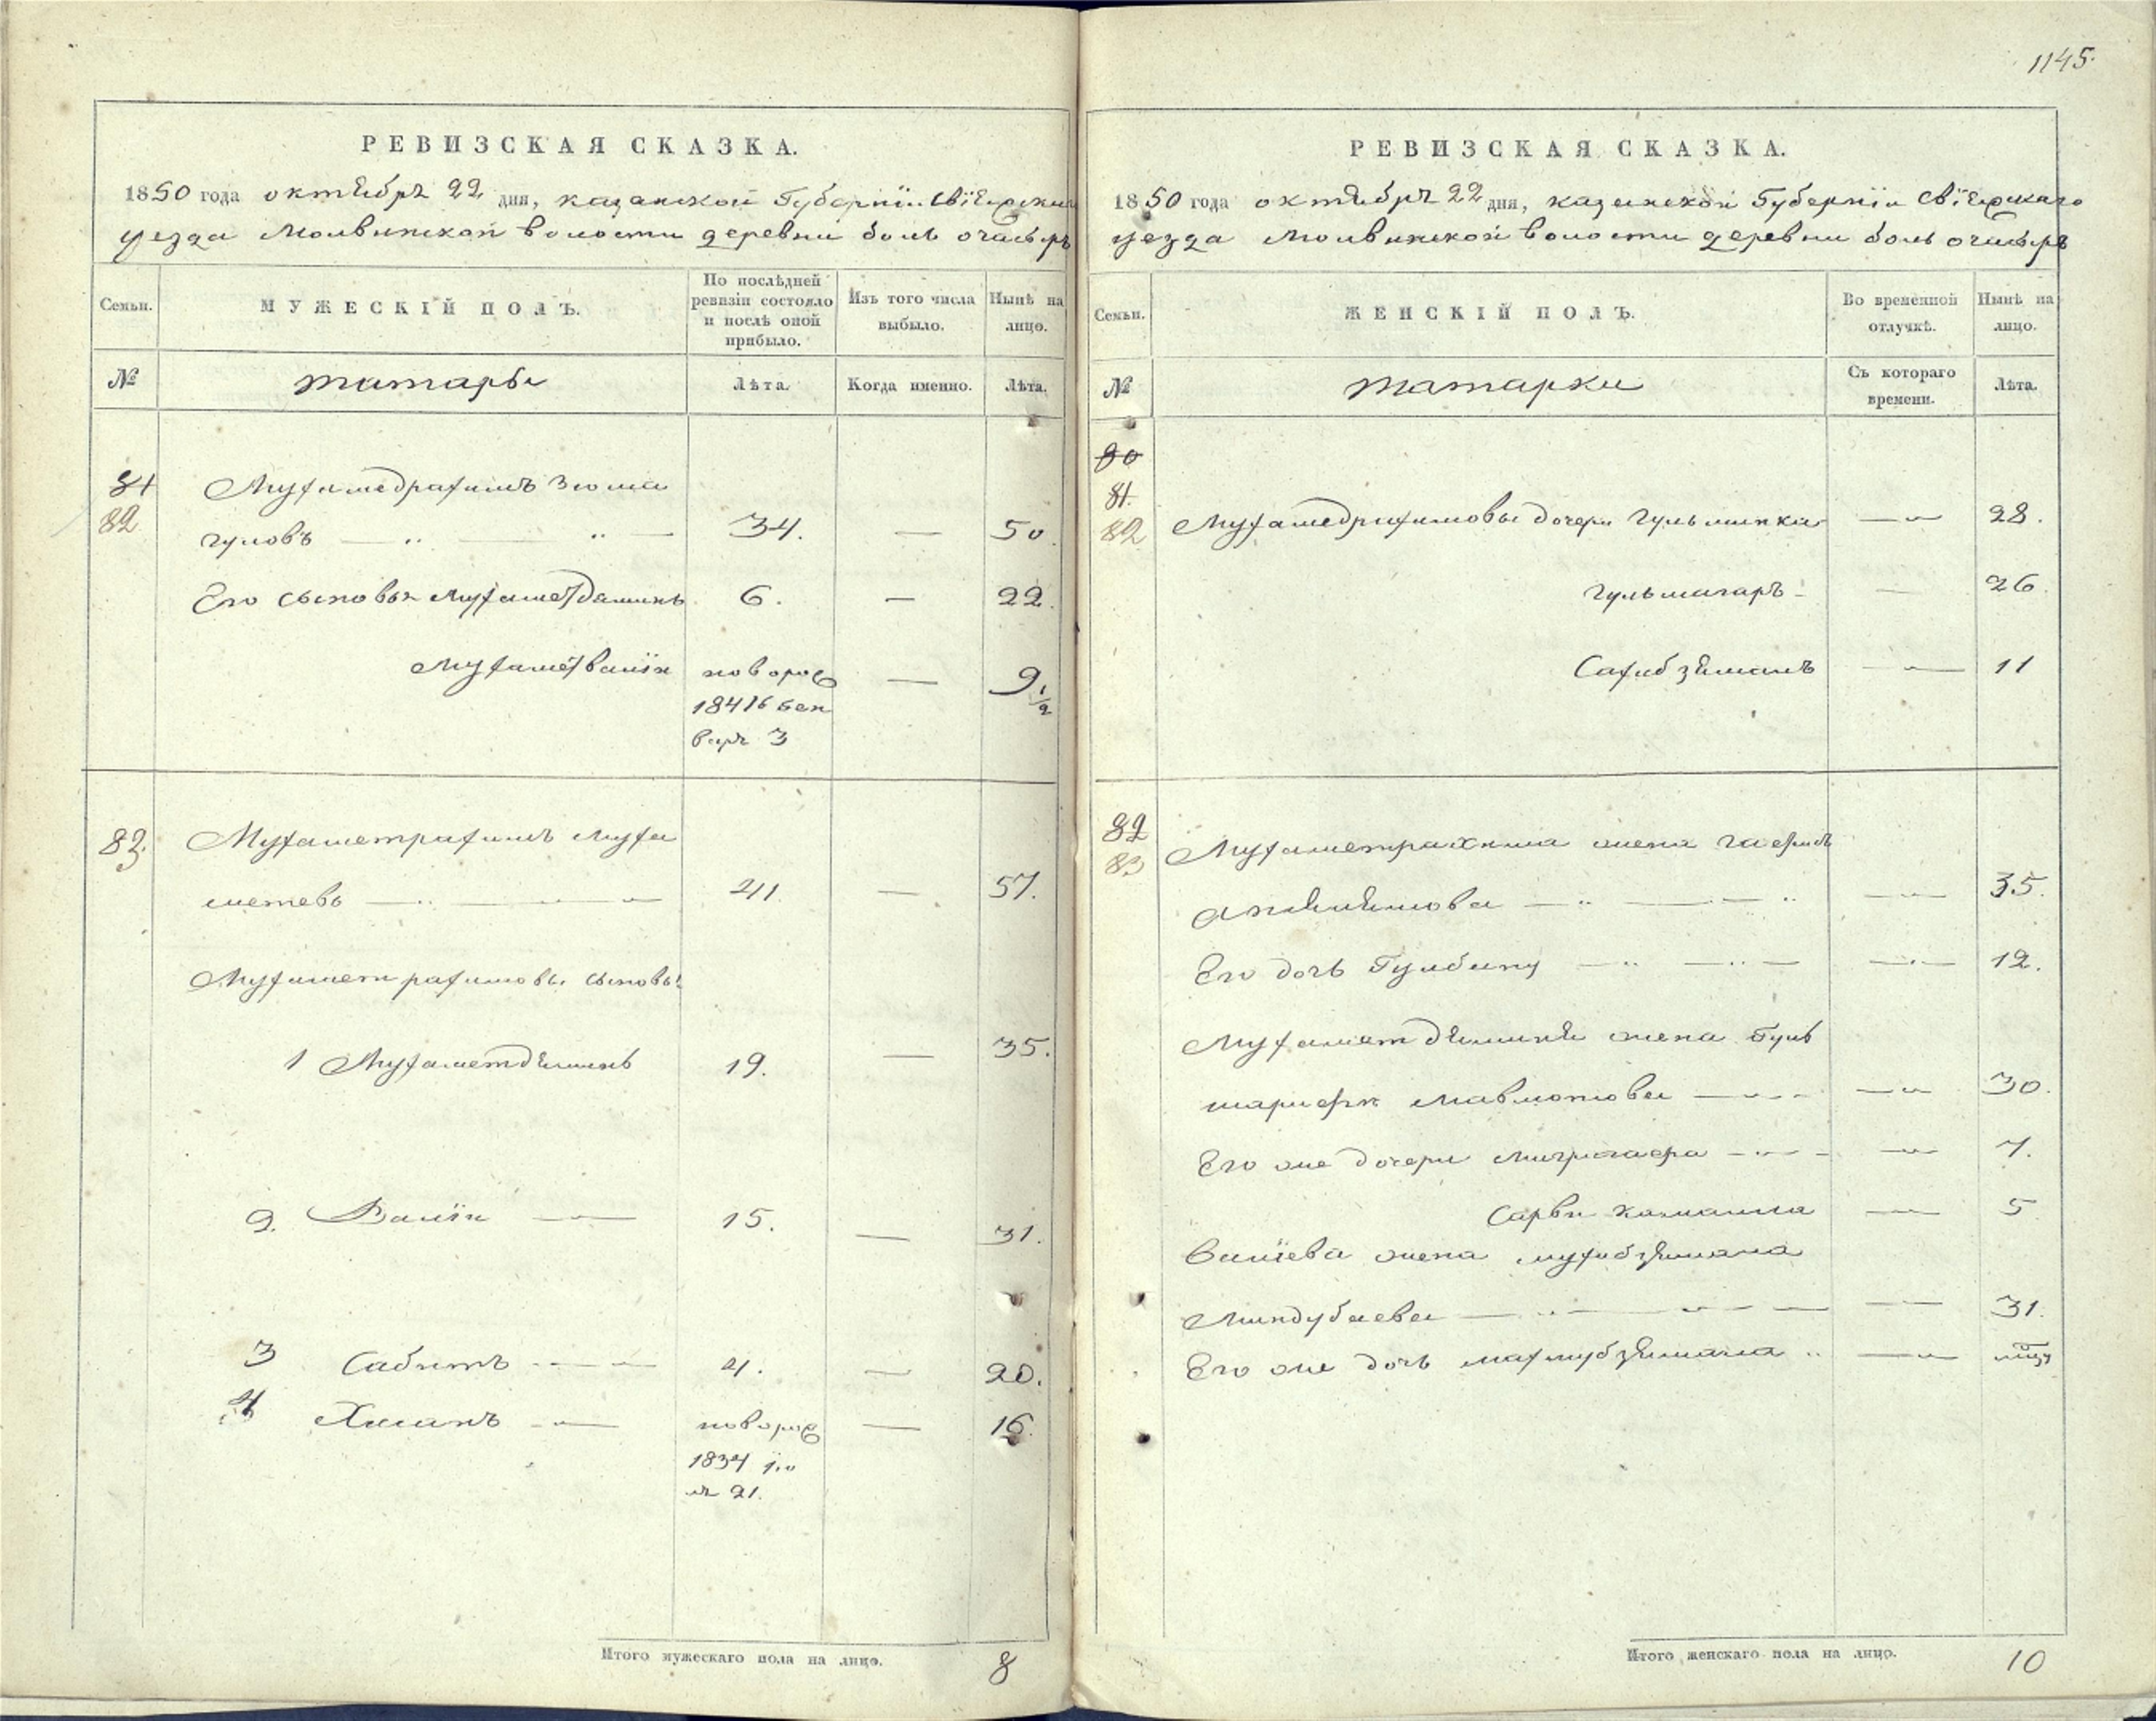 1145.
РЕВИЗСКАЯ СКАЗКА.
1850 года октября 22 дня, казанской Губерніи Свіяжскаго
уезда Молвинской волости деревни боль очасырь
Семьи.
МУЖЕСКІЙ ПОЛЪ.
По послѣдней
ревизіи состояло
и послѣ оной
прибыло.
Изъ того числа
выбыло.
Нынѣ на
лицо.
№
татары
Лѣта.
Когда именно.
Лѣта.
81
82
Мухамедрахимъ Зюма
гуловъ 34. — 50.
Его сыновья Мухаметзяминъ 6. — 22.
Мухаметвалiи новорож — 9 1/2
1841 г ген
варя 3
83.
Мухаметрахимъ Муха
метевъ 41. — 57.
Мухаметрахимовы сыновья
1 Мухаметдъминъ 19. — 35.
2. Валiи 15. — 31.
3 Сабитъ 4. — 20.
4 Хасанъ новорож — 16.
1834 ію
ля 21.
Итого мужескаго пола на лицо. 8
РЕВИЗСКАЯ СКАЗКА.
1850 года октября 22 дня, казанской Губерніи Свіяжскаго
уезда Молвинской волости деревни боль очасырь
Семьи.
ЖЕНСКІЙ ПОЛЪ.
Во временной
отлучкѣ.
Нынѣ на
лицо.
№
татарки
Съ котораго
времени.
Лѣта.
80
81.
82
Мухамедрахимовы дочери Гульминка — 28.
Гульмагаръ — 26.
Сахибзяманъ — 11
82
83
Мухаметрахима жена
— 35.
Его дочь Гулбану — 12.
Мухаметдъмина жена Гуль
шарифя Мавлютова — 30.
Его же дочери — 7.
Сарви камалла — 5
Валіева жена мухибзямала
Миндубаева — 31.
Его же дочь махмубзямала —
Итого женскаго пола на лицо. 10